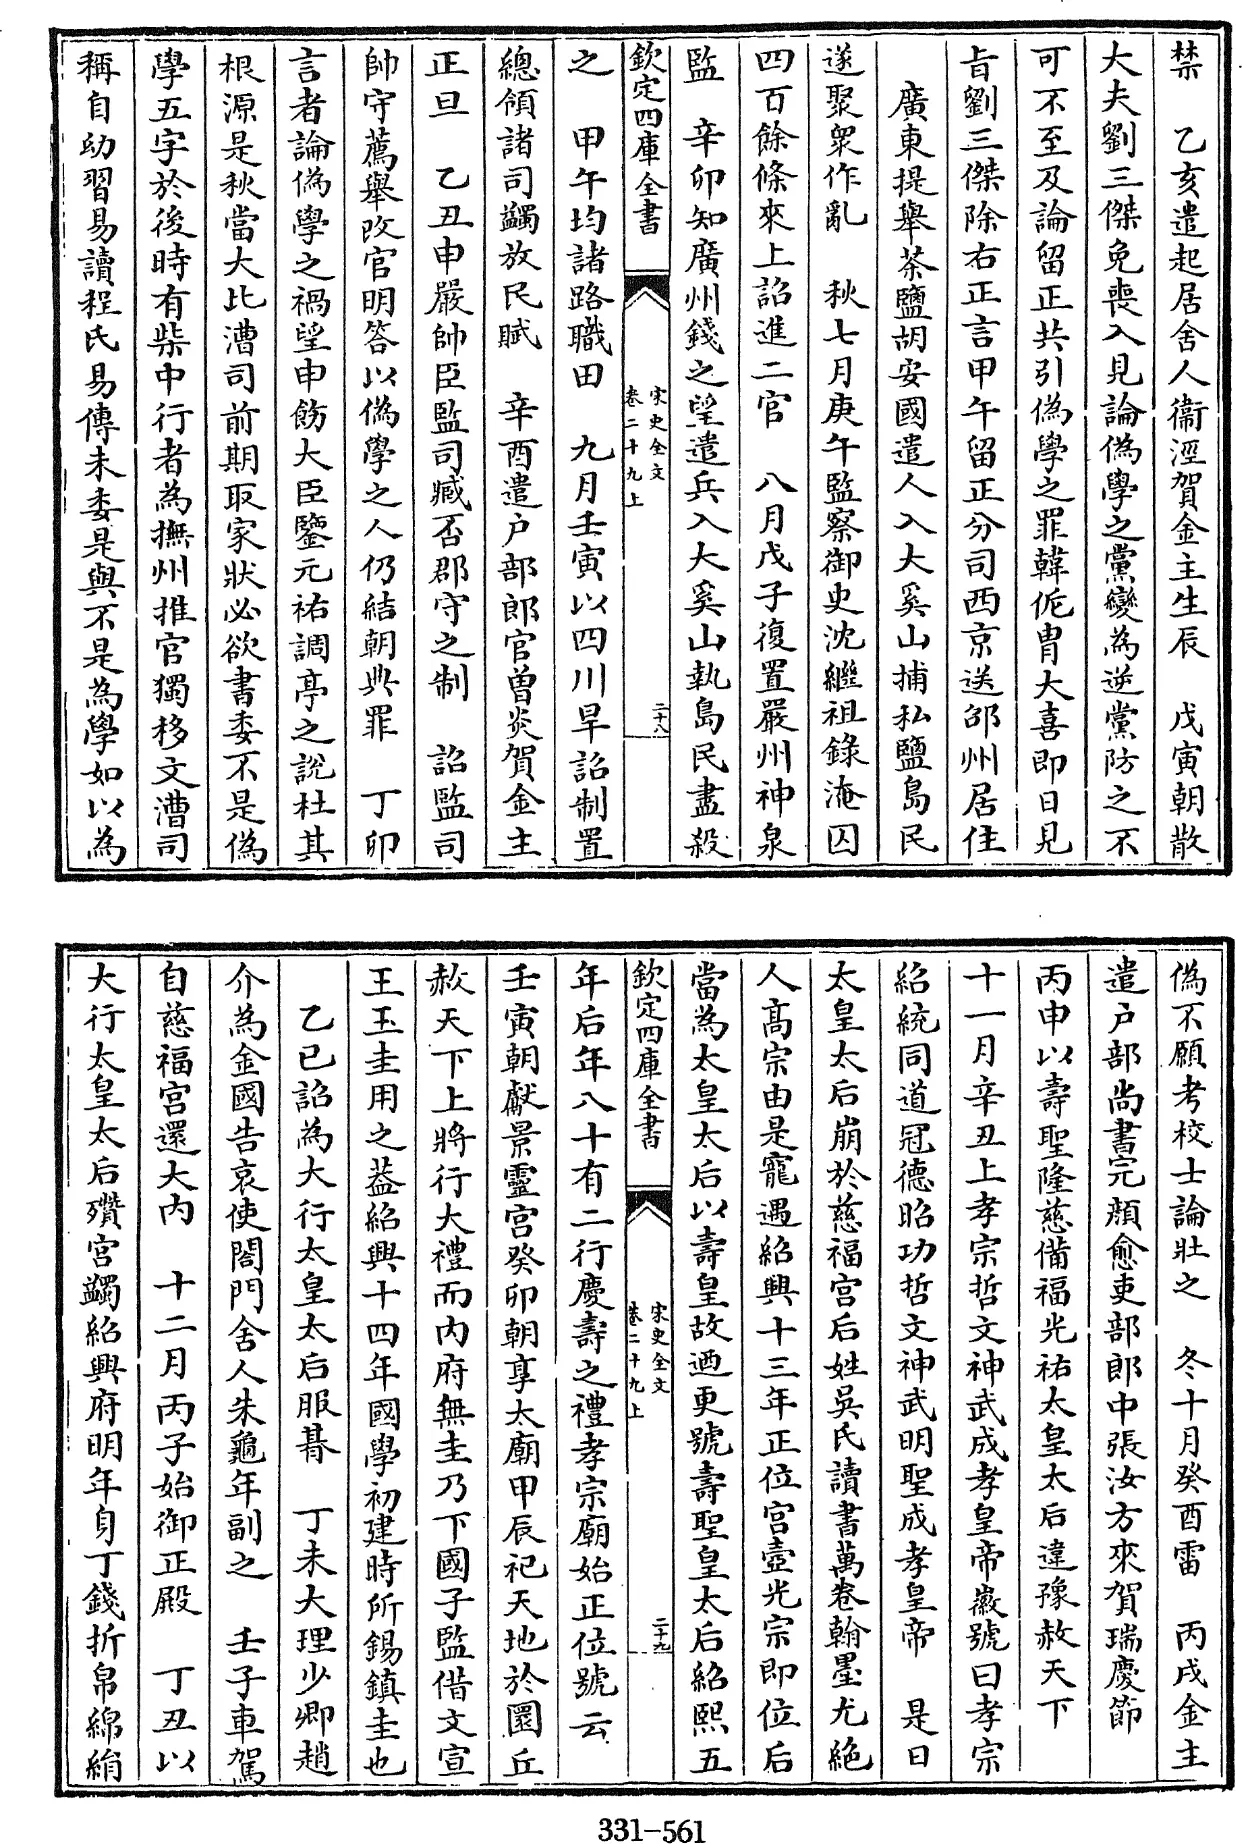 禁　乙亥遣起居舍人衞涇賀金主生辰　戊寅朝散
大夫劉三傑免喪入見論偽學之黨變為逆黨防之不
可不至及論留正共引偽學之罪韓侂胄大喜即日見
旨劉三傑除右正言甲午留正分司西京送邵州居住
廣東提舉茶鹽胡安國遣人入大奚山捕私鹽島民
遂聚衆作亂　秋七月庚午監察御史沈繼祖錄淹囚
四百餘條來上詔進二官　八月戊子復置嚴州神泉
監　辛卯知廣州錢之望遣兵入大奚山執島民盡殺
欽定四庫全書　宋史全文卷二十九上　二十八
之　甲午均諸路職田　九月壬寅以四川旱詔制置
總領諸司蠲放民賦　辛酉遣户部郎官曽炎賀金主
正旦　乙丑申嚴帥臣監司臧否郡守之制　詔監司
帥守薦舉改官明答以偽學之人仍結朝典罪　丁卯
言者論偽學之禍望申飭大臣鑒元祐調亭之説杜其
根源是秋當大比漕司前期取家狀必欲書委不是偽
學五字於後時有柴中行者為撫州推官獨移文漕司
稱自幼習易讀程氏易傳未委是與不是為學如以為
偽不願考校士論壯之　冬十月癸酉雷　丙戌金主
遣户部尚書完顔愈吏部郎中張汝方來賀瑞慶節
丙申以壽聖隆慈備福光祐太皇太后違豫赦天下
十一月辛丑上孝宗哲文神武成孝皇帝徽號曰孝宗
紹統同道冠德昭功哲文神武明聖成孝皇帝　是日
太皇太后崩於慈福宮后姓吳氏讀書萬卷翰墨尤絶
人高宗由是寵遇紹興十三年正位宮壼光宗即位后
當為太皇太后以壽皇故迺更號壽聖皇太后紹熙五
欽定四庫全書　宋史全文卷二十九上　二十九
年后年八十有二行慶壽之禮孝宗廟始正位號云
壬寅朝獻景靈宮癸卯朝享太廟甲辰祀天地於圜丘
赦天下上將行大禮而内府無圭乃下國子監借文宣
王玉圭用之葢紹興十四年國學初建時所錫鎮圭也
乙已詔為大行太皇太后服朞　丁未大理少卿趙
介為金國告哀使閤門舍人朱龜年副之　壬子車駕
自慈福宮還大内　十二月丙子始御正殿　丁丑以
大行太皇太后殯宮蠲紹興府明年身丁錢折帛綿絹
331-561